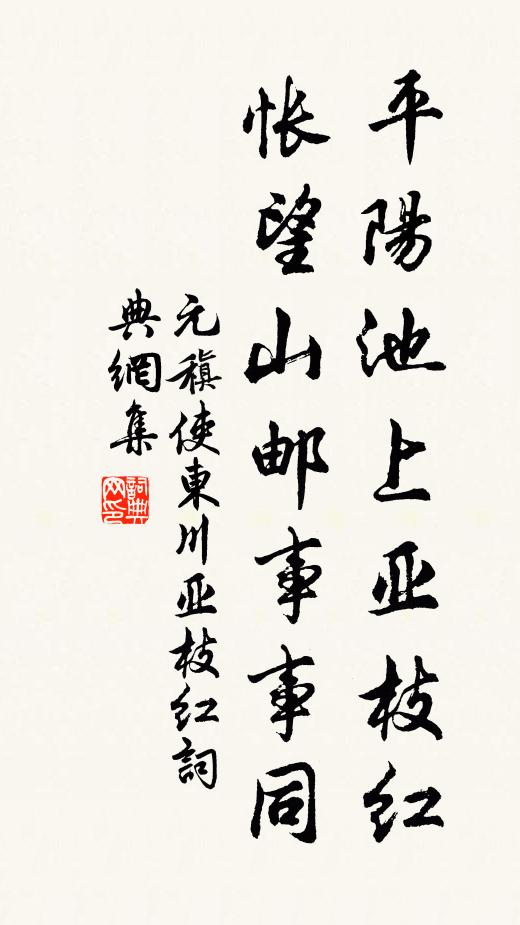 平陽池上亚枝红
怅望山邮事事同
元稹使東川亚枝红詞
典網集
詞典网印